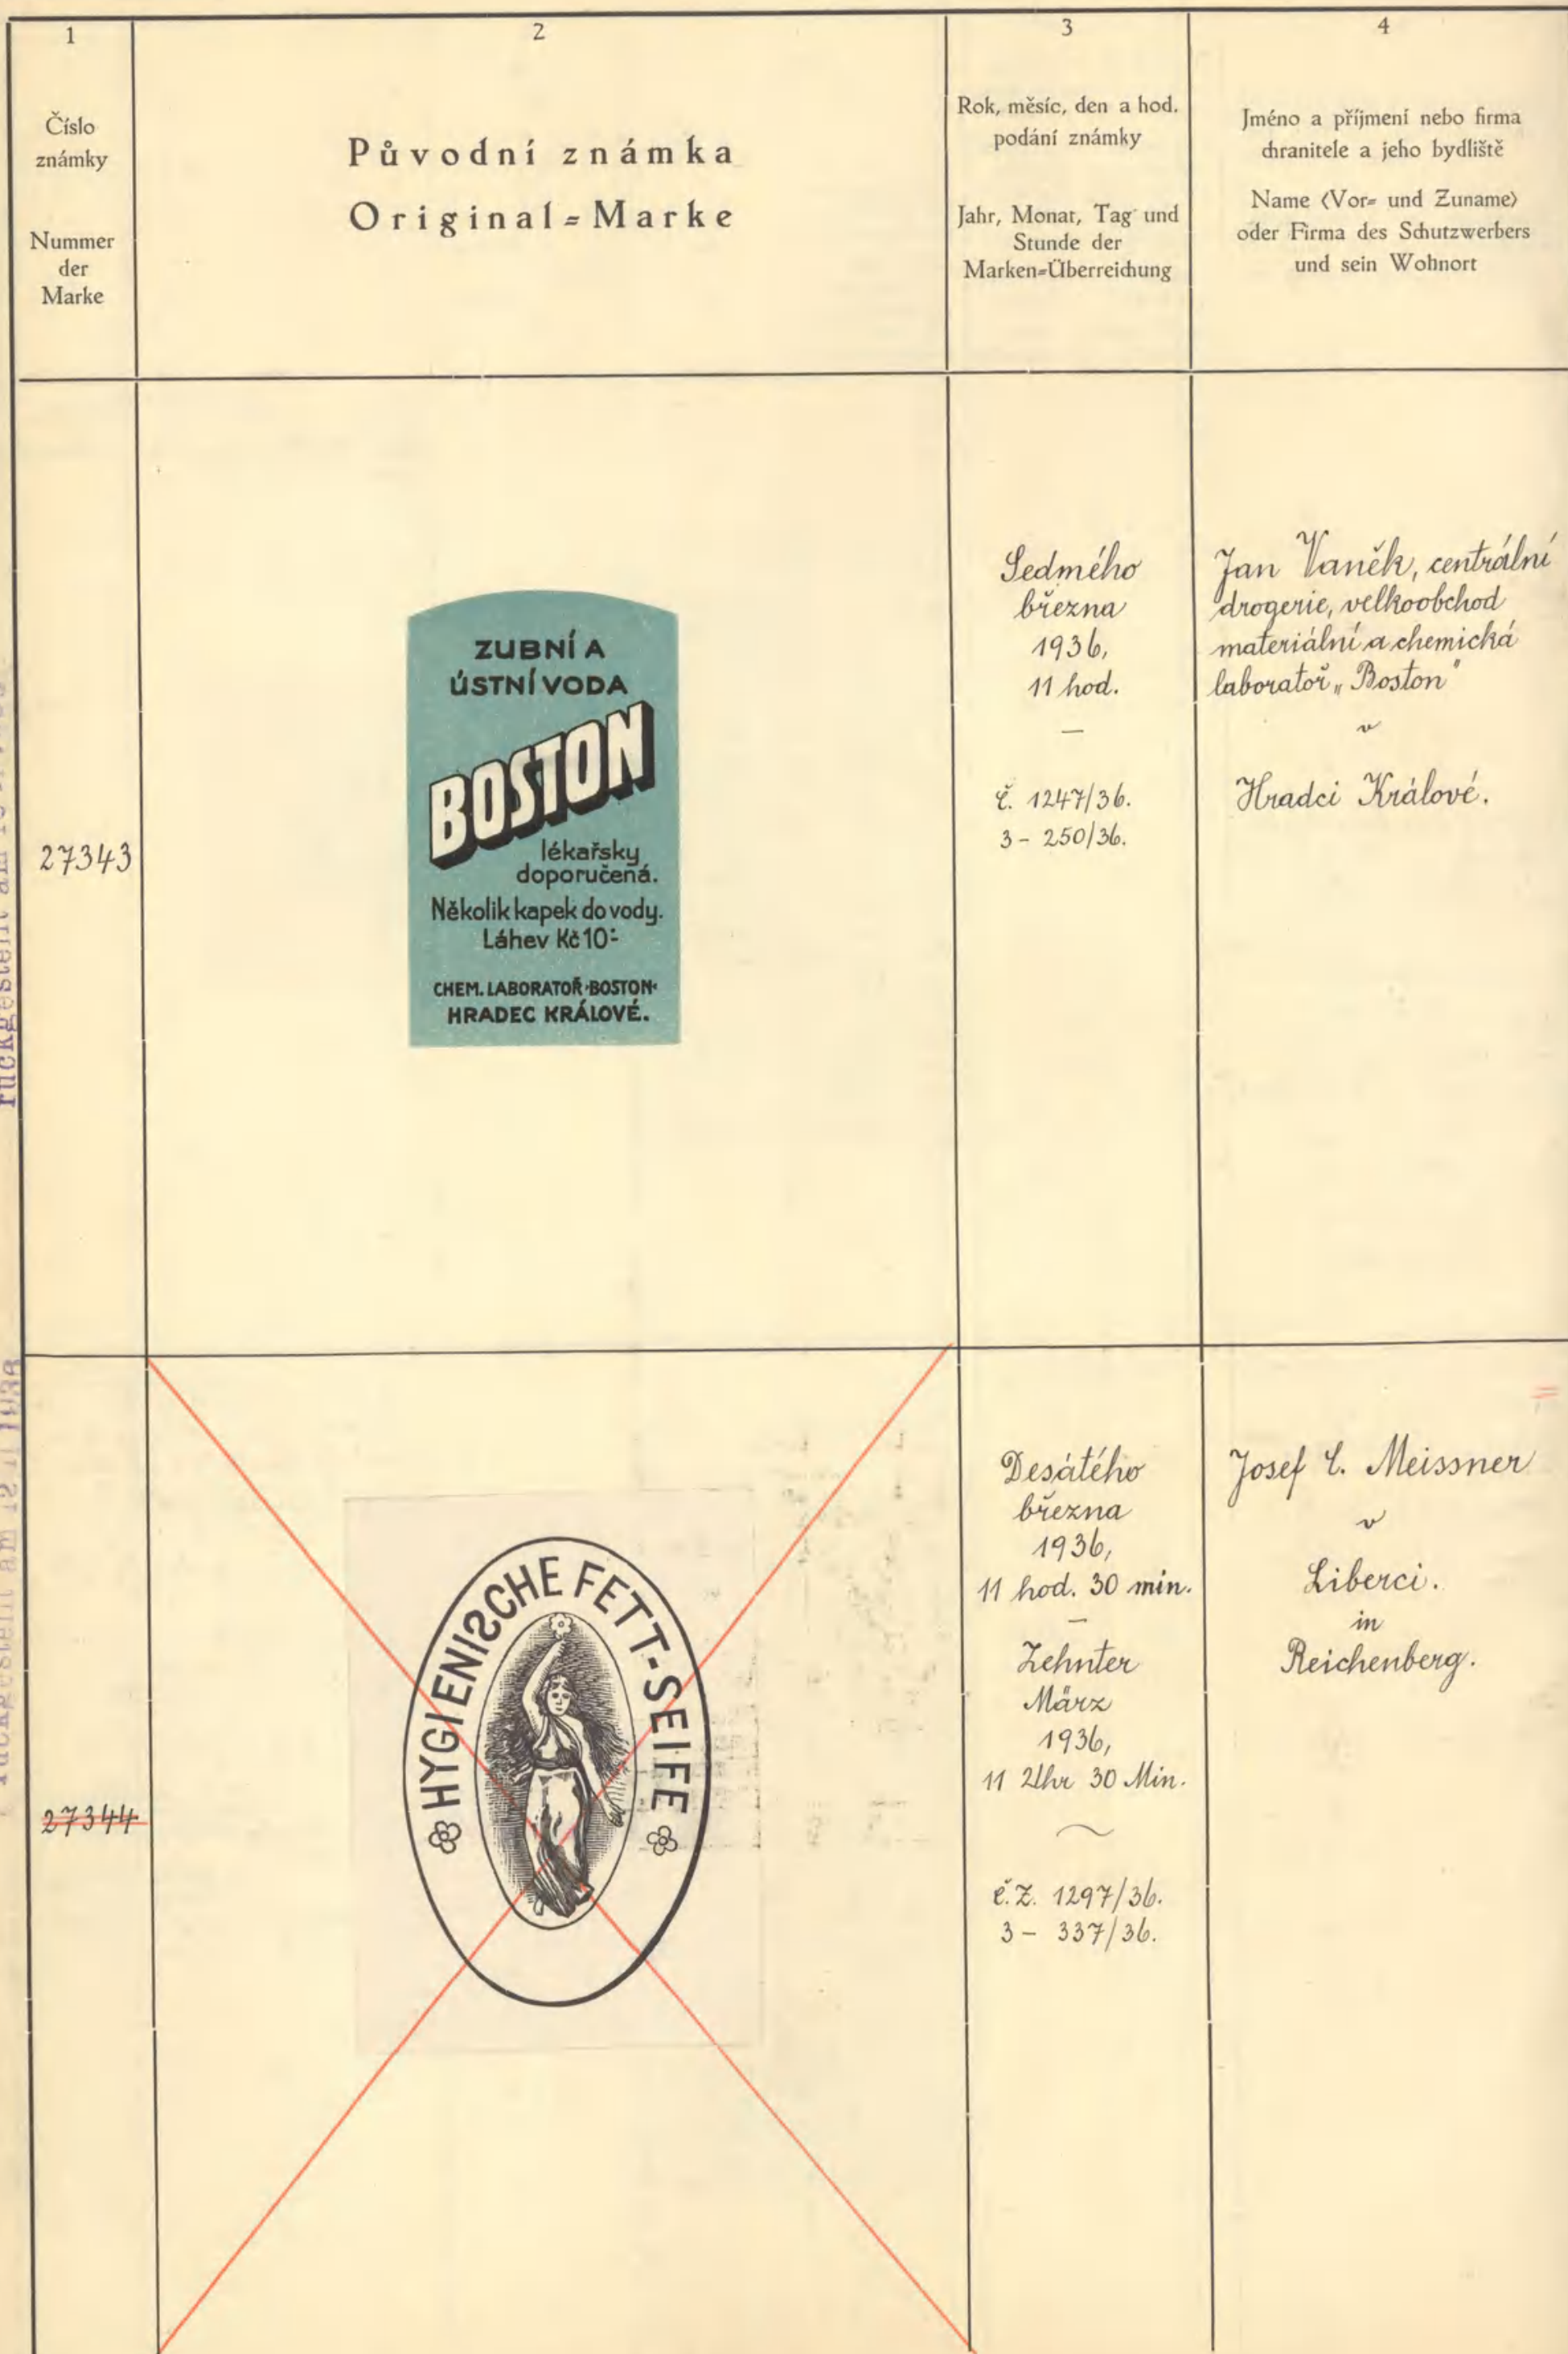 1
Číslo
známky
Nummer
der
Marke
2
Původní známka
Original=Marke
3
Rok, měsíc, den a hod.
podání známky
Jahr, Monat, Tag und
Stunde der
Marken=Überreichung
4
Jméno a příjmení nebo firma
chranitele a jeho bydliště
Name (Vor= und Zuname)
oder Firma des Schutzwerbers
und sein Wohnort
27343
ZUBNÍ A
ÚSTNÍ VODA
BOSTON
lékařsky
doporučená.
Několik kapek do vody.
Láhev Kč 10·-
CHEM. LABORATOŘ·BOSTON·
HRADEC KRÁLOVÉ.
Sedmého
března
1936,
11 hod.
—
č. 1247/36.
3 – 250/36.
Jan Vaněk, centrální
drogerie, velkoobchod
materiální a chemická
laboratoř „Boston"
v
Hradci Králové.
27344
HYGIENISCHE FETT-SEIFE
Desátého
března
1936,
11 hod. 30 min.
—
Zehnter
März
1936,
11 Uhr 30 Min.
č.Z. 1297/36.
3 – 337/36.
Josef Meissner
v
Liberci.
in
Reichenberg.
rückgestellt am
rückgestellt am 12